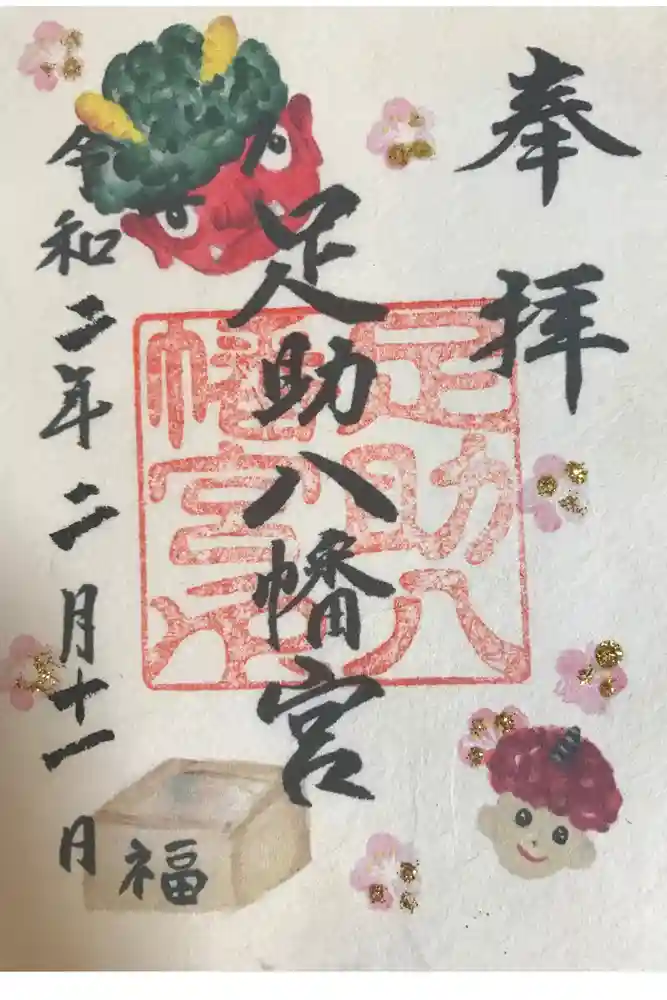 奉拝
足助八幡宮
足助八
幡宮之
令和二年二月十一日
福